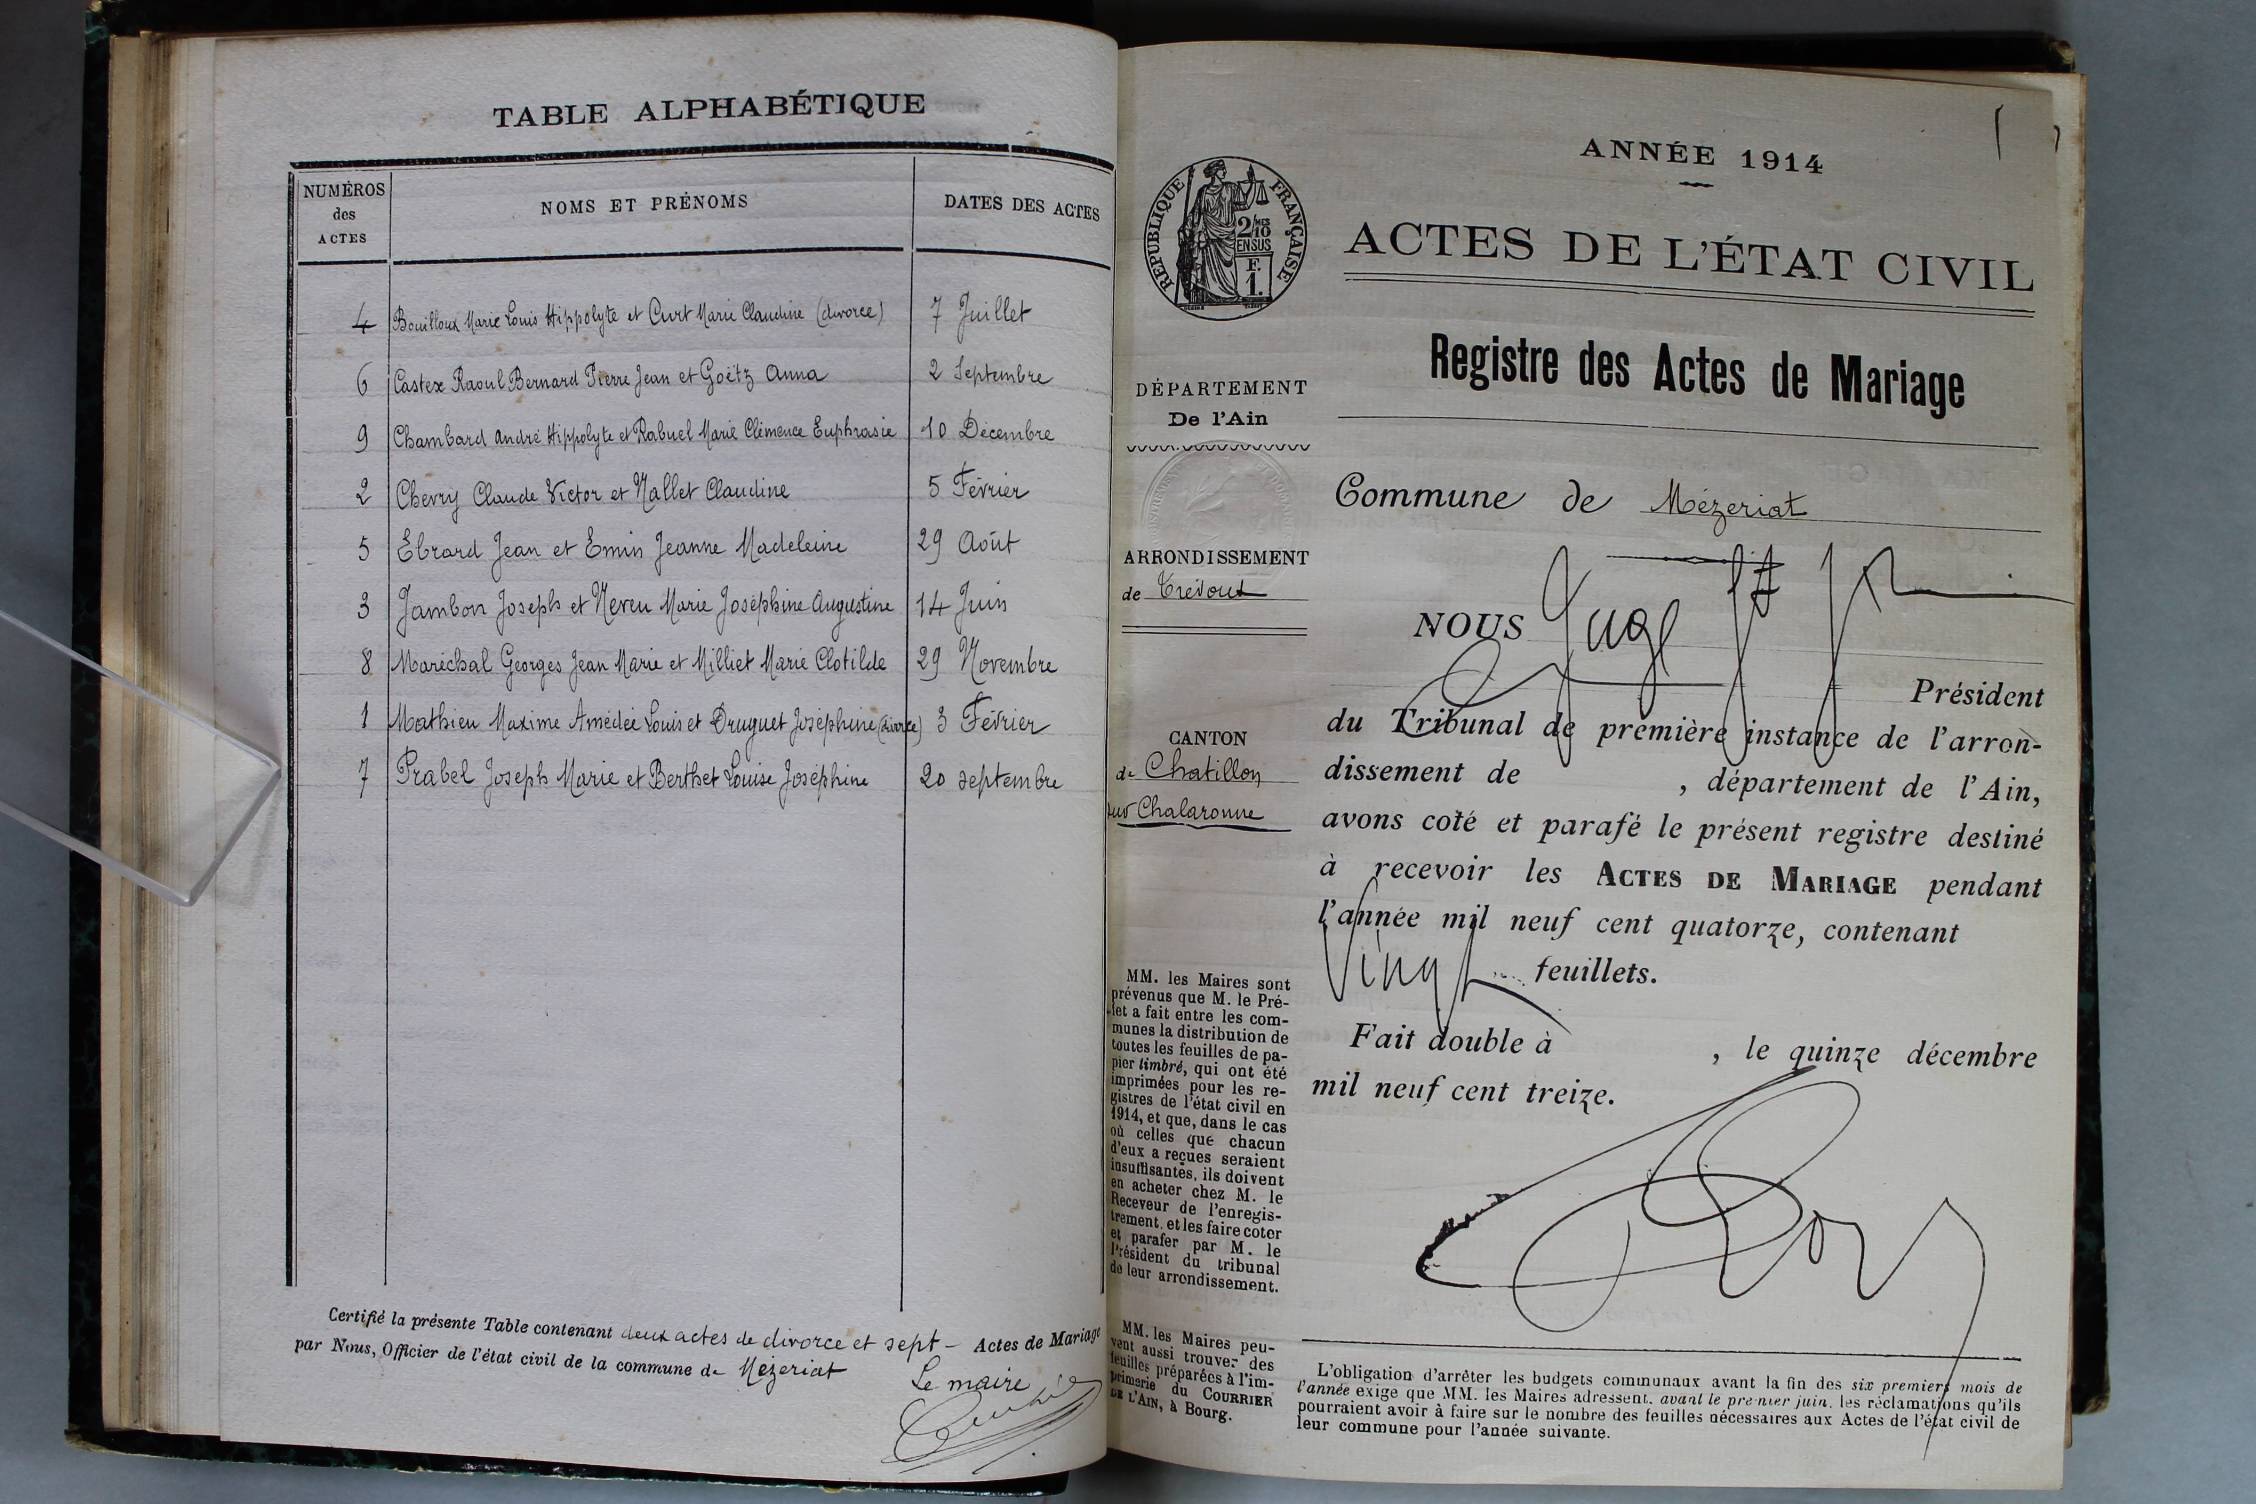 TABLE ALPHABÉTIQUE
NUMÉROS
des
ACTES
NOMS ET PRÉNOMS
DATES DES ACTES
4 Bouilloux Marie Louis Hippolyte et Curt Marie Claudine (divorce) 7 Juillet
6 Castex Raoul Bernard Pierre Jean et Goëtz Anna 2 Septembre
9 Chambard André Hippolyte et Rabuel Marie Clémence Euphrasie 10 Décembre
2 Chevry Claude Victor et Mallet Claudine 5 Février
5 Ebrard Jean et Emin Jeanne Madeleine 29 Août
3 Jambon Joseph et Neveu Marie Joséphine Augustine 14 Juin
8 Maréchal Georges Jean Marie et Milliet Marie Clotilde 29 Novembre
1 Mathieu Maxime Amédée Louis et Druguet Joséphine (divorce) 3 Février
7 Prabel Joseph Marie et Berthet Louise Joséphine 20 septembre
Certifié la présente Table contenant deux actes de divorce et sept - Actes de Mariage
par Nous, Officier de l'état civil de la commune de Mézeriat
Le maire
ANNÉE 1914
RÉPUBLIQUE FRANÇAISE
2/10 MES
EN SUS
F.
1.
ACTES DE L'ÉTAT CIVIL
Registre des Actes de Mariage
DÉPARTEMENT
De l'Ain
Commune de Mézeriat
ARRONDISSEMENT
de Trévoux
NOUS Juge
Président
du Tribunal de première instance de l'arron-
dissement de , département de l'Ain,
avons coté et parafé le présent registre destiné
à recevoir les ACTES DE MARIAGE pendant
l'année mil neuf cent quatorze, contenant
Vingt feuillets.
Fait double à , le quinze décembre
mil neuf cent treize.
CANTON
de Chatillon
sur Chalaronne
MM. les Maires sont
prévenus que M. le Pré-
fet a fait entre les com-
munes la distribution de
toutes les feuilles de pa-
pier timbré, qui ont été
imprimées pour les re-
gistres de l'état civil en
1914, et que, dans le cas
où celles que chacun
d'eux a reçues seraient
insuffisantes, ils doivent
en acheter chez M. le
Receveur de l'enregis-
trement, et les faire coter
et parafer par M. le
Président du tribunal
de leur arrondissement.
MM. les Maires peu-
vent aussi trouver des
feuilles préparées à l'im-
primerie du COURRIER
DE L'AIN, à Bourg.
L'obligation d'arrêter les budgets communaux avant la fin des six premiers mois de
l'année exige que MM. les Maires adressent, avant le premier juin, les réclamations qu'ils
pourraient avoir à faire sur le nombre des feuilles nécessaires aux Actes de l'état civil de
leur commune pour l'année suivante.